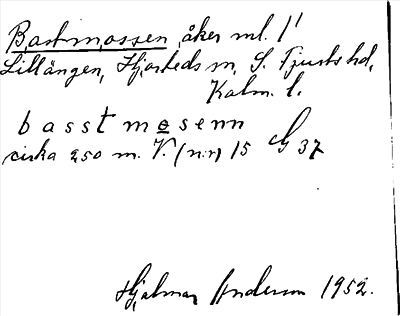 Bastmossen, åker ml. 1'
Lillängen, Hjorteds sn, S. Tjusts hd,
Kalm. l.
basstmosenn
cirka 250 m. V. (nr) 15 G 37
Hjalmar Anderson 1952.